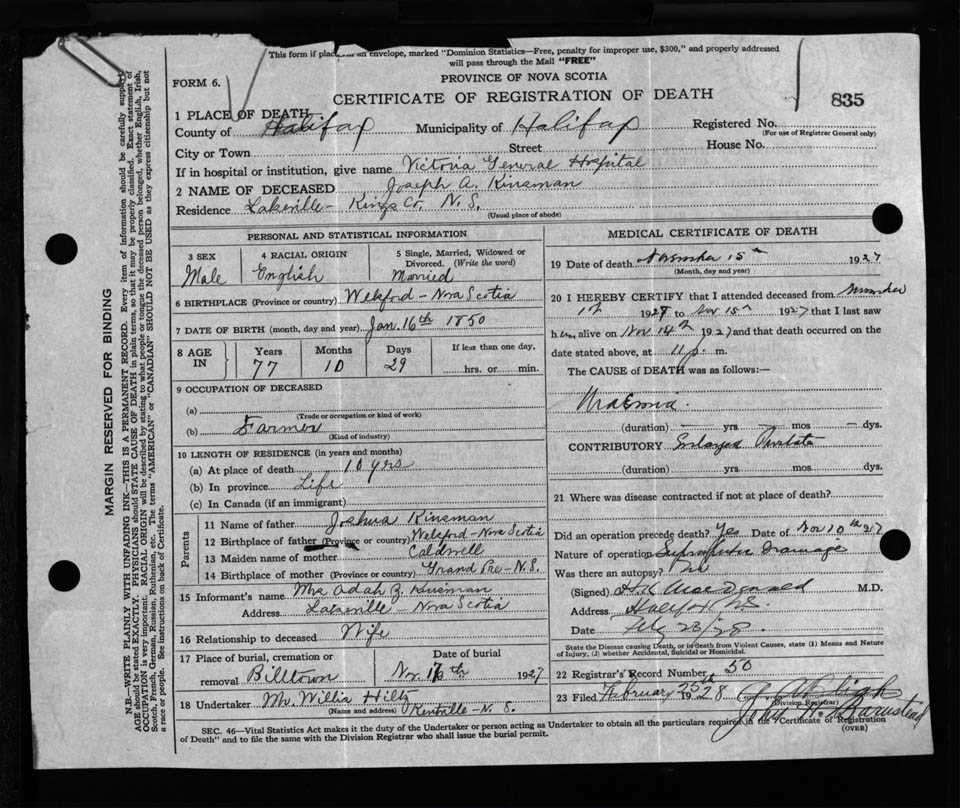 This form if placed in an envelope, marked "Dominion Statistics—Free, penalty for improper use, $300," and properly addressed
will pass through the Mail "FREE"
PROVINCE OF NOVA SCOTIA
FORM 6.
CERTIFICATE OF REGISTRATION OF DEATH
835
1 PLACE OF DEATH
County of Halifax Municipality of Halifax Registered No.
(For use of Registrar General only)
City or Town Street House No.
If in hospital or institution, give name Victoria General Hospital
2 NAME OF DECEASED Joseph A. Kinsman
Residence Lakeville - Kings Co. N.S.
(Usual place of abode)
PERSONAL AND STATISTICAL INFORMATION
3 SEX 4 RACIAL ORIGIN 5 Single, Married, Widowed or
Divorced. (Write the word)
Male English Married
6 BIRTHPLACE (Province or country) Welsford - Nova Scotia
7 DATE OF BIRTH (month, day and year) Jan. 16th 1850
8 AGE IN Years Months Days If less than one day,
77 10 29 hrs. or min.
9 OCCUPATION OF DECEASED
(a)
(Trade or occupation or kind of work)
(b) Farmer
(Kind of industry)
10 LENGTH OF RESIDENCE (in years and months)
(a) At place of death 10 yrs
(b) In province Life
(c) In Canada (if an immigrant)
Parents
11 Name of father Joshua Kinsman
12 Birthplace of father (Province or country) Welsford - Nova Scotia
13 Maiden name of mother Caldwell
14 Birthplace of mother (Province or country) Grand Pre - N.S.
15 Informant's name Mrs Adah B. Kinsman
Address Lakeville - Nova Scotia
16 Relationship to deceased Wife
17 Place of burial, cremation or Date of burial
removal Billtown Nov. 17th 1927
18 Undertaker Mr. Willia Hiltz
(Name and address) Kentville - N.S.
MEDICAL CERTIFICATE OF DEATH
19 Date of death November 15th 1927
(Month, day and year)
20 I HEREBY CERTIFY that I attended deceased from November
1st 1927 to Nov 15th 1927 that I last saw
him alive on Nov 14th 1927 and that death occurred on
date stated above, at 11 p. m.
The CAUSE of DEATH was as follows:—
Uraemia
(duration) — yrs. — mos — dys.
CONTRIBUTORY Enlarged Prostate
(duration) yrs. mos. dys.
21 Where was disease contracted if not at place of death?
Did an operation precede death? Yes Date of Nov 10th 27
Nature of operation Suprapubic Drainage
Was there an autopsy? No
(Signed) H.K. MacDonald M.D.
Address Halifax N.S.
Date Feb 23/28
State the Disease causing Death, or in death from Violent Causes, state (1) Means and Nature
of Injury, (2) whether Accidental, Suicidal or Homicidal.
22 Registrar's Record Number 50
23 Filed February 25th 1928
(Division Registrar)
Barnstead
SEC. 46—Vital Statistics Act makes it the duty of the Undertaker or person acting as Undertaker to obtain all the particulars required in the "Certificate of Registration
of Death" and to file the same with the Division Registrar who shall issue the burial permit.
(OVER)
MARGIN RESERVED FOR BINDING
N.B.—WRITE PLAINLY WITH UNFADING INK—THIS IS A PERMANENT RECORD. Every item of information should be carefully supplied.
AGE should be stated EXACTLY. PHYSICIANS should STATE CAUSE OF DEATH in plain terms, so that it may be properly classified. Exact statement of
OCCUPATION is very important. RACIAL ORIGIN will be described by stating to what people or tongue the deceased person belonged, whether English, Irish,
Scotch, French, German, Russian, Ruthenian, etc. The terms "AMERICAN" or "CANADIAN" SHOULD NOT BE USED as they express citizenship but not
a race or people. See instructions on back of Certificate.